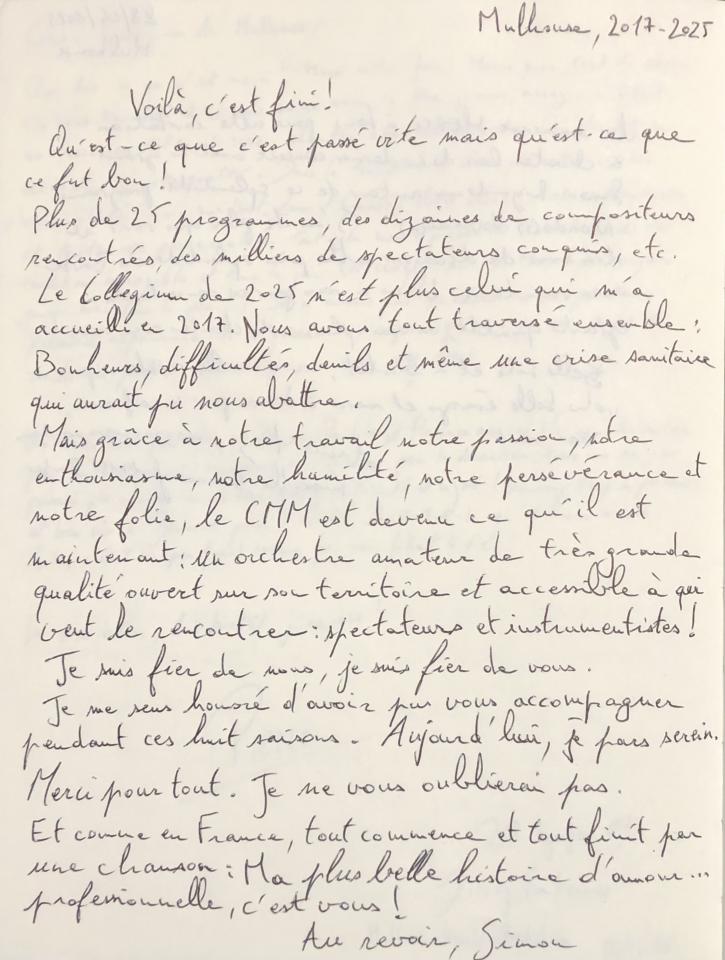 Mulhouse, 2017-2025
Voilà, c'est fini!
Qu'est-ce que c'est passé vite mais qu'est-ce que
ce fut bon!
Plus de 25 programmes, des dizaines de compositeurs
rencontrés, des milliers de spectateurs conquis, etc.
Le Collegium de 2025 n'est plus celui qui m'a
accueilli en 2017. Nous avons tout traversé ensemble:
Bonheurs, difficultés, deuils et même une crise sanitaire
qui aurait pu nous abattre.
Mais grâce à notre travail notre passion, notre
enthousiasme, notre humilité, notre persévérance et
notre folie, le CMM est devenu ce qu'il est
maintenant: un orchestre amateur de très grande
qualité ouvert sur son territoire et accessible à qui
veut le rencontrer: spectateurs et instrumentistes!
Je suis fier de nous, je suis fier de vous.
Je me sens honoré d'avoir pu vous accompagner
pendant ces huit saisons. Aujourd'hui, je pars serein.
Merci pour tout. Je ne vous oublierai pas.
Et comme en France, tout commence et tout finit par
une chanson: Ma plus belle histoire d'amour...
professionnelle, c'est vous!
Au revoir, Simon